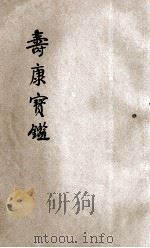 壽康寶鑑
mtoou.info